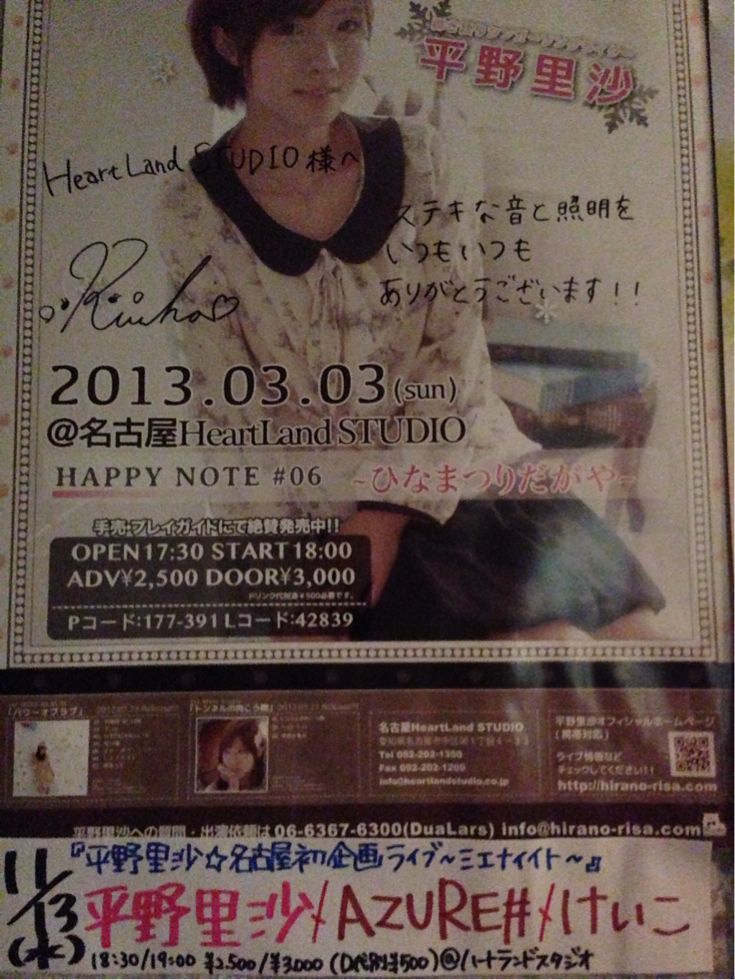 平野里沙
HeartLand STUDIO 様へ
ステキな音と照明を
いつもいつも
ありがとうございます!!
2013.03.03(sun)
@名古屋HeartLand STUDIO
HAPPY NOTE #06 ~ひなまつりだがや~
手売・プレイガイドにて絶賛発売中!!
OPEN17:30 START18:00
ADV¥2,500 DOOR¥3,000
ドリンク代別途¥500必要です。
Pコード:177-391 Lコード:42839
「パワーオブラブ」
「トンネルの向こう側」
名古屋HeartLand STUDIO
Tel 052-202-1350
Fax 052-202-1266
info@heartlandstudio.co.jp
平野里沙オフィシャルホームページ
(携帯対応)
ライブ情報など
チェックしてください!!
http://hirano-risa.com
平野里沙への質問・出演依頼は 06-6367-6300(DuaLars) info@hirano-risa.com
11/13(水)
『平野里沙☆名古屋初企画ライブ~ミエナイイト~』
平野里沙/AZURE#/けいこ
18:30/19:00 ¥2,500/¥3,000 (D代別¥500)@ハートランドスタジオ